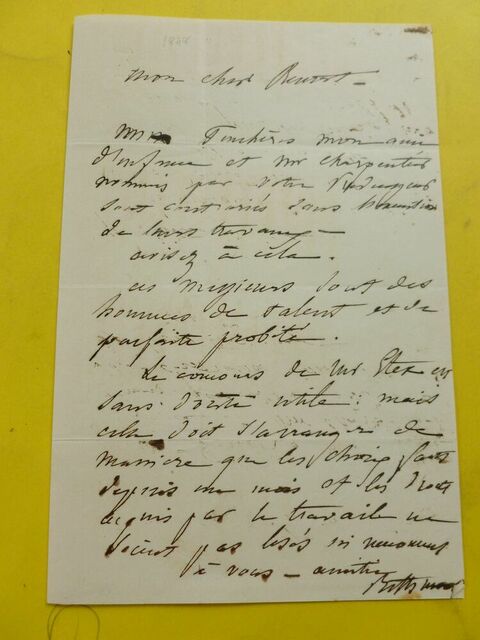 mon cher
mon ami
d'enfance et mr Charpentier
nommés par votre
sont contrariés dans
de leurs travaux -
avisez à cela.
ces messieurs sont des
hommes de talent et de
parfaite probité.
Le concours de Mr Etex est
sans doute utile : mais
cela doit s'arranger de
manière que les choix faits
depuis un mois et les droits
acquis par le travail ne
soient pas lésés
à vous - amitié